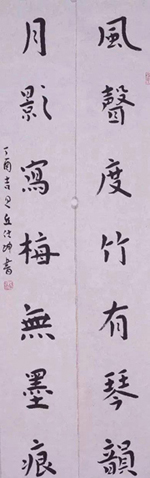 風聲度竹有琴韻
月影寫梅無墨痕
丁酉吉月丘仕坤書